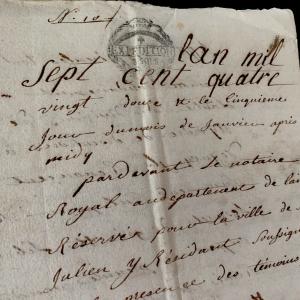 N. 10
EXPEDITION
lan mil
Sept cent quatre
vingt douze & le Cinquieme
Jour dumois de Janvier après
midy
pardevant le notaire
Royal audepartement de lai
Réservé pour la ville de
Julien y Résidant Soussign
presence des témoins